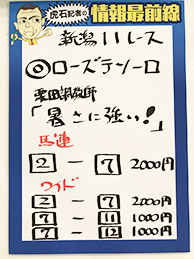 虎石記者の
情報最前線
新潟11レース
◎ローズテソーロ
栗田調教師
「暑さに強い!」
馬連
2-7 2000円
ワイド
2-7 2000円
7-11 1000円
7-12 1000円